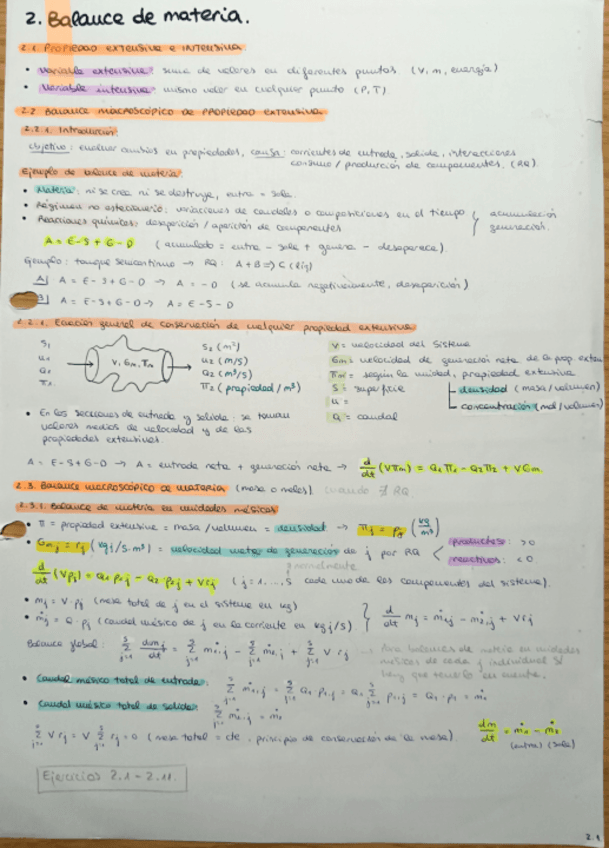 2. Balance de materia.
2.1. Propiedad extensiva e intensiva
• Variable extensiva: suma de valores en diferentes puntos (V, m, energía)
• Variable intensiva: mismo valor en cualquier punto (P, T)
2.2 Balance macroscópico de propiedad extensiva
2.2.1. Introducción
Objetivo: evaluar cambios en propiedades, causa: corrientes de entrada, salida, interacciones
consumo / producción de componentes. (RQ)
Ejemplo de balance de materia:
• Materia: ni se crea ni se destruye, entra = sale.
• Régimen no estacionario: variaciones de caudales o composiciones en el tiempo
• Reacciones químicas: desaparición / aparición de componentes
} acumulación generación.
A = E - S + G - D (acumulado = entra - sale + genera - desaparece).
Ejemplo: tanque semicontinuo → RQ: A + B => C (liq)
A| A = E - S + G - D → A = -D (se acumula negativamente, desaparición)
B| A = E - S + G - D → A = E - S - D
2.2.1. Ecuación general de conservación de cualquier propiedad extensiva
S₁ u₁ Q₁ π₁
V, Gm, πm
S₂ (m²)
u₂ (m/s)
Q₂ (m³/s)
π₂ (propiedad / m³)
Gm = velocidad de generación neta de la prop. exten
πm = según la unidad, propiedad extensiva
S = superficie
densidad (masa/volumen)
u =
concentración (mol/volumen)
Q = caudal
• En las secciones de entrada y salida: se toman
valores medios de velocidad y de las
propiedades extensivas.
A = E - S + G - D → A = entrada neta + generación neta → d/dt (Vπm) = Q₁π₁ - Q₂π₂ + VGm
2.3. Balance macroscópico de materia (masa o moles). cuando ∄ RQ
2.3.1. Balance de materia en unidades másicas
• π = propiedad extensiva = masa / volumen = densidad → πj = ρj (kg/m³)
• Gm,j = rj (kg j / s·m³) = velocidad de generación de j por RQ < productos: > 0
reactivos: < 0
d/dt (Vρj) = Q₁ρ₁j - Q₂·ρ₂j + Vrj (j = 1, ..., S cada uno de los componentes del sistema).
• mj = V·ρj (masa total de j en el sistema en kg)
• ṁj = Q·ρj (caudal másico de j en la corriente en kg j/s) } d/dt mj = ṁ₁,j - ṁ₂,j + Vrj
Balance global: Σ dmj/dt = Σ ṁ₁,j - Σ ṁ₂,j + Σ V rj
Para balances de materia en unidades
másicas de cada j individual sí
hay que tenerlo en cuenta.
• Caudal másico total de entrada: Σ ṁ₁,j = Σ Q₁ ρ₁,j = Q₁ Σ ρ₁,j = Q₁·ρ₁ = ṁ₁
• Caudal másico total de salida: Σ ṁ₂,j = ṁ₂
Σ V rj = V Σ rj = 0 (masa total = cte, principio de conservación de la masa). dm/dt = ṁ₁ - ṁ₂
(entra) (sale)
Ejercicios 2.1 - 2.11.
2.1